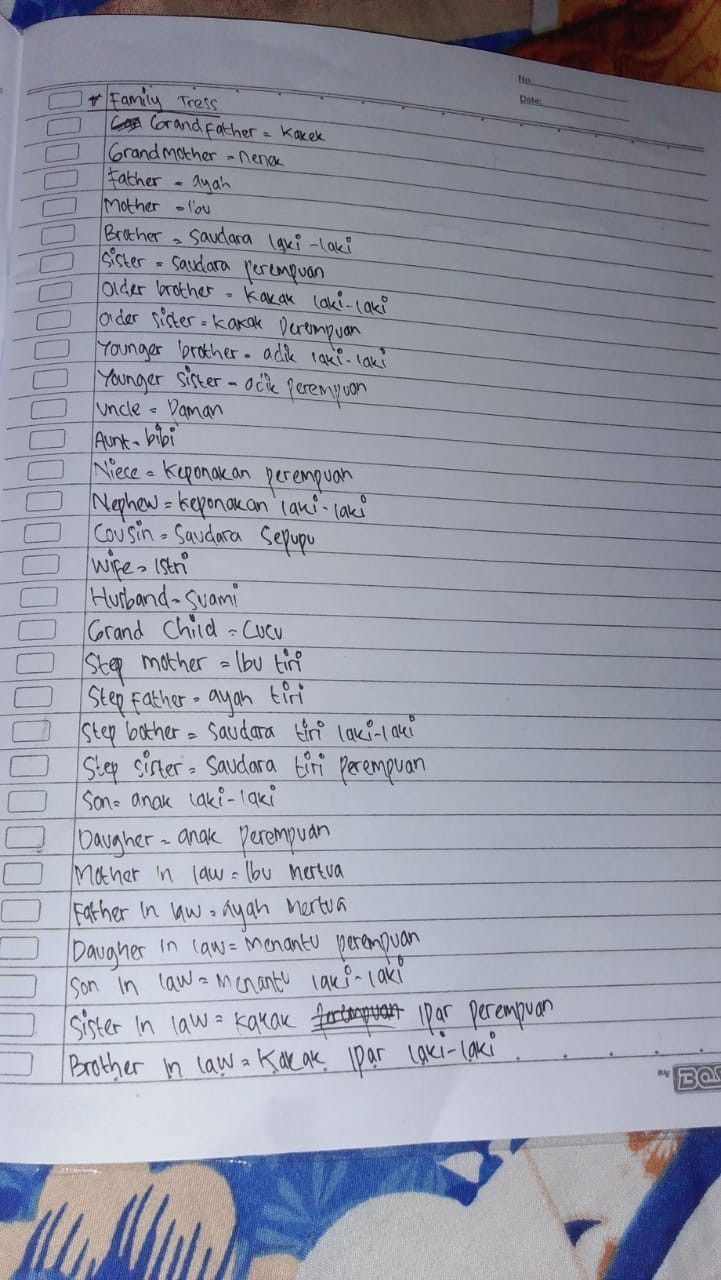 No.
Date:
* Family Tress
Grandfather = Kakek
Grandmother = nenek
Father = ayah
Mother = Ibu
Brother = Saudara laki-laki
Sister = Saudara perempuan
Older brother = Kakak laki-laki
older Sister = Kakak perempuan
Younger brother = adik laki-laki
Younger Sister = adik perempuan
Uncle = Paman
Aunt = bibi
Niece = Keponakan perempuan
Nephew = keponakan laki-laki
Cousin = Saudara Sepupu
Wife = Istri
Husband = Suami
Grand Child = Cucu
Step mother = Ibu tiri
Step Father = ayah tiri
Step bother = Saudara tiri laki-laki
Step Sister = Saudara tiri perempuan
Son = anak laki-laki
Daugher = anak perempuan
Mother in law = Ibu Mertua
Father in law = ayah Mertua
Daugher in law = Menantu perempuan
Son in law = Menantu laki-laki
Sister in law = Kakak Ipar perempuan
Brother in law = Kakak Ipar laki-laki
By